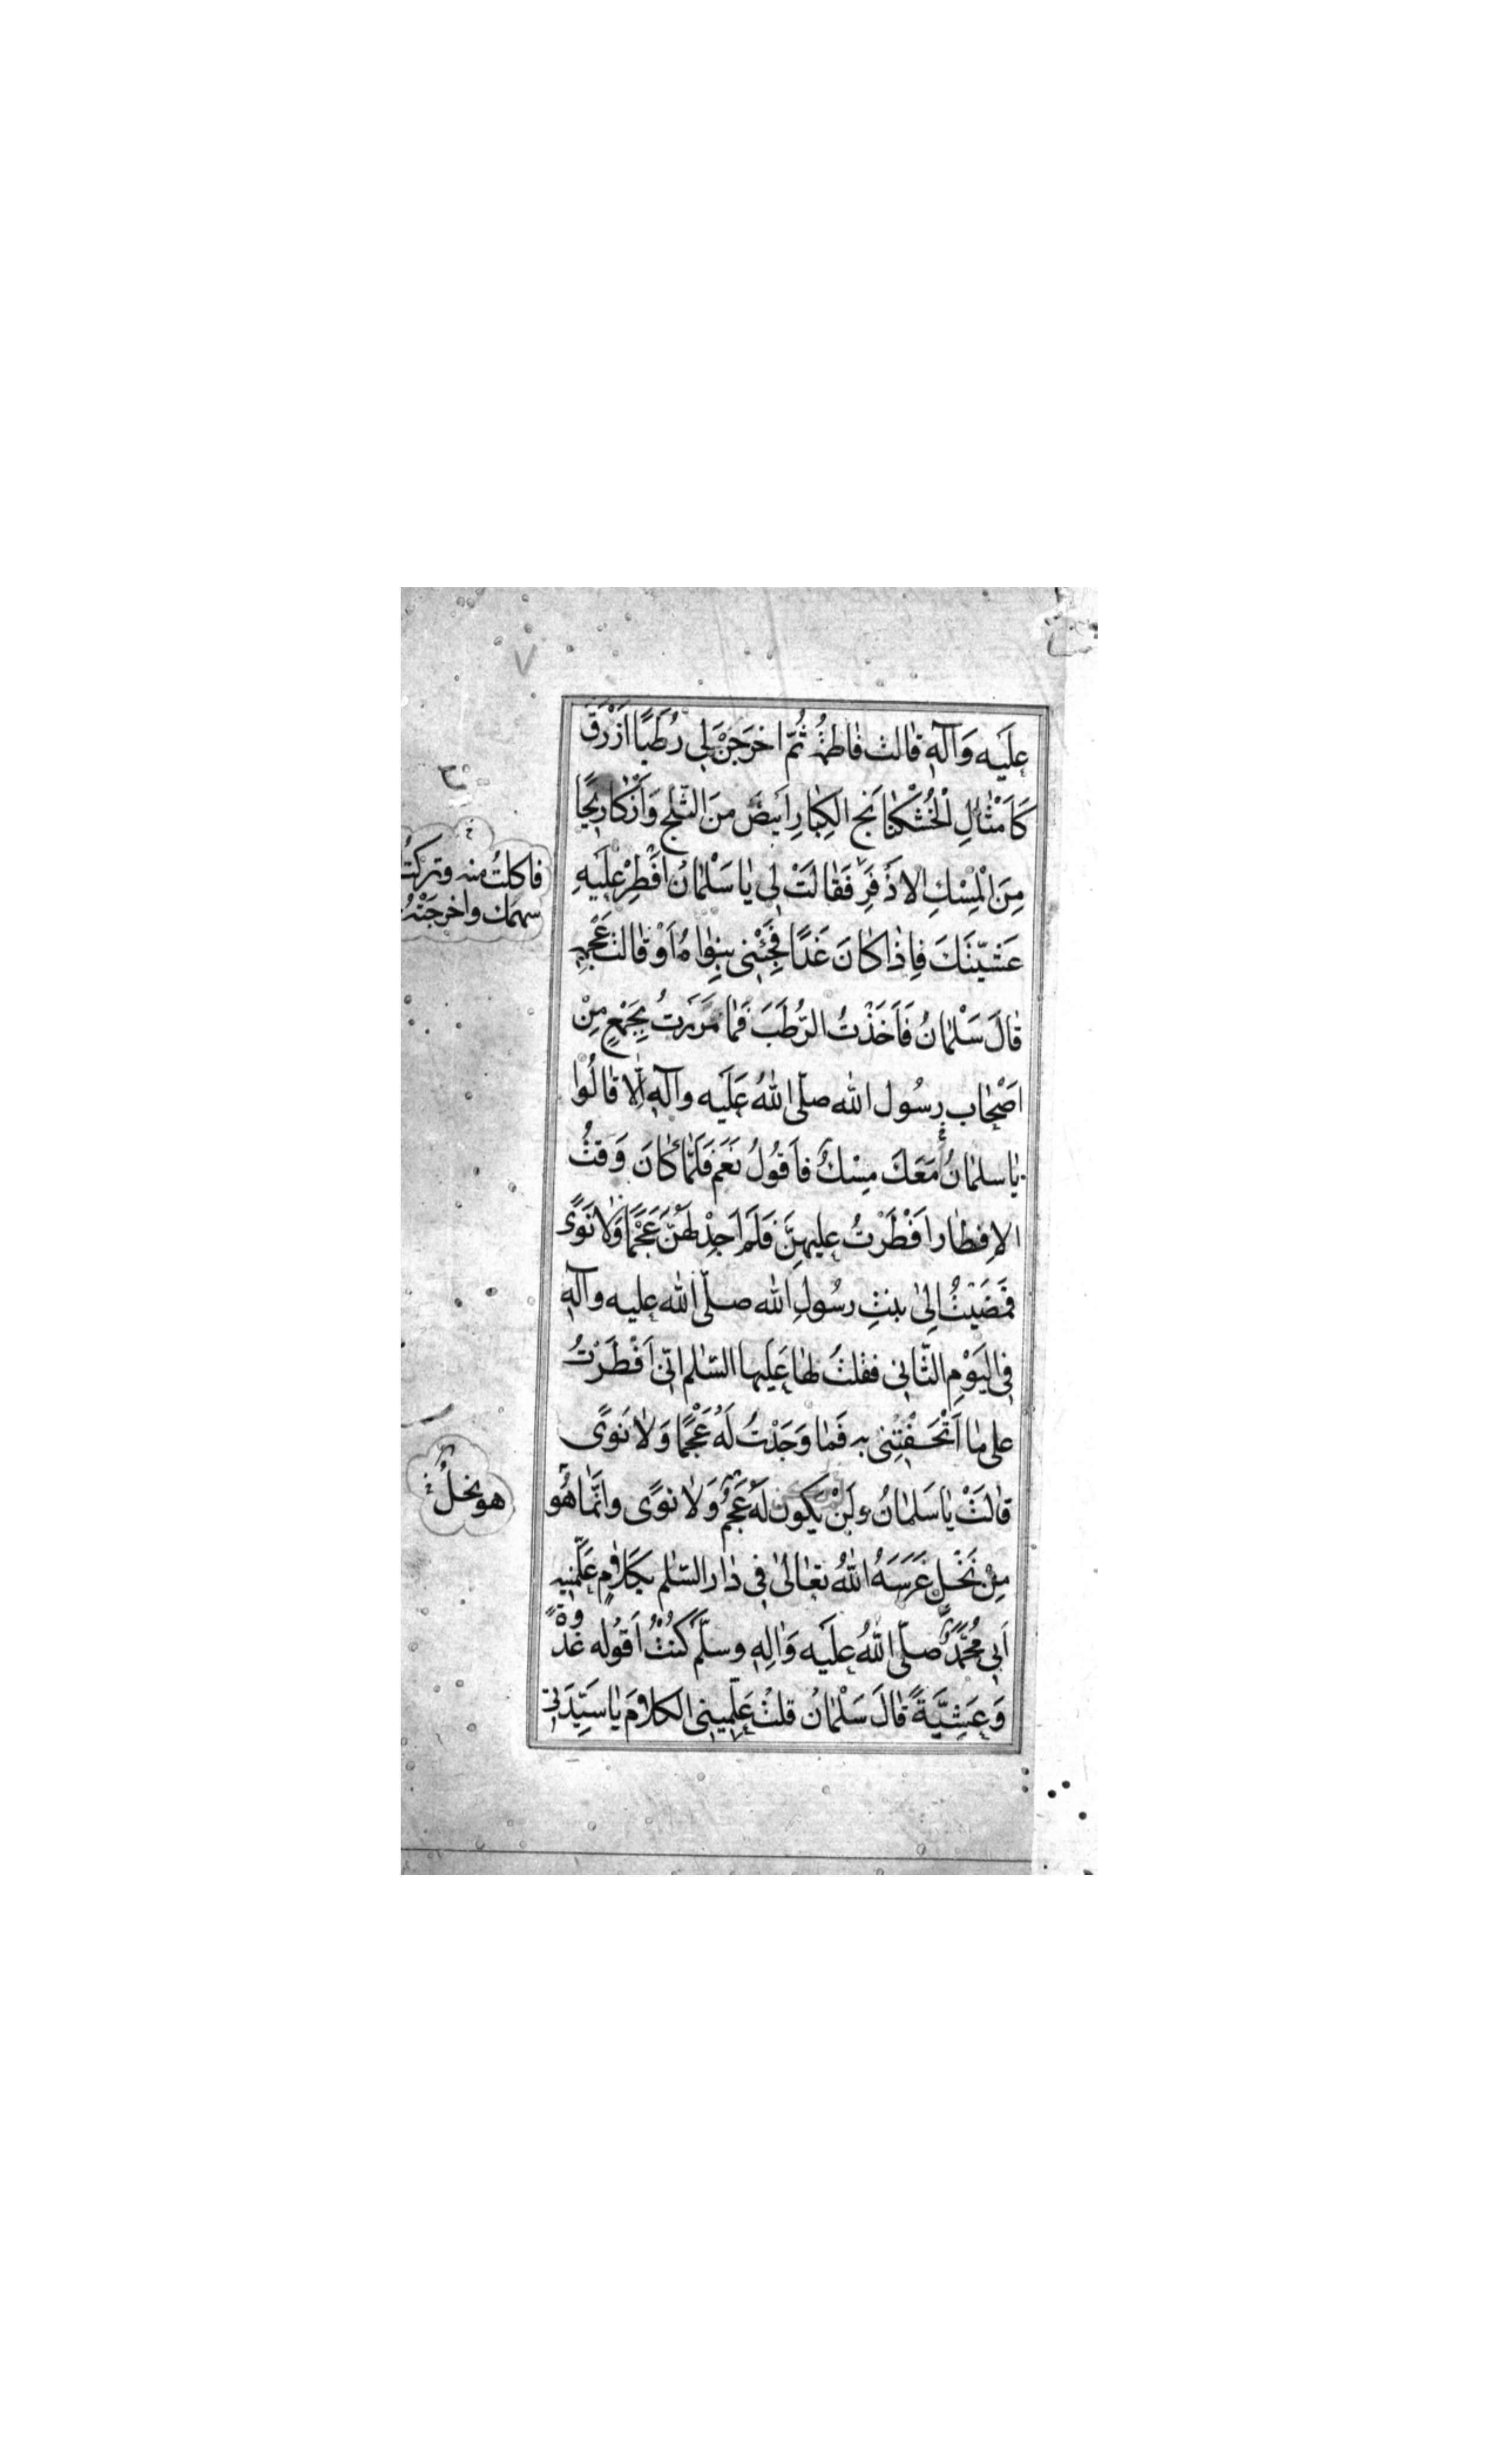 عَلَيْه وَآلِهِ قالت فاطِمَةُ ثُمَّ اخرَجْنَ لِي رُطَبًا اَزْرَق
كَاَمْثالِ الْخُشْكَنانَج الكِبارِ اَبيَضَ مِنَ الثّلج وَاَزْكا رِيحًا
مِنَ الْمِسْكِ الاَذْفَرِ فَقالَتْ لِي يا سَلْمانُ اَفْطِرْ عَلَيهِ
عَشيّتَكَ فاِذا كانَ غَدًا فَجِئْنى بِنَواهُ اَوْ قالت عَجْمِهِ
قالَ سَلْمانُ فَاَخَذْتُ الرُّطَبَ فَما مَرَرتُ بِجَمْعٍ مِنْ
اَصْحابِ رسُول الله صلّى اللهُ عَلَيه وآلِهِ اِلّا قالُوا
يا سلمانُ اَمَعَكَ مِسْكٌ فاَقُولُ نَعَم فَلَمّا كانَ وَقتُ
الاِفطار اَفْطَرْتُ عليهِنَّ فَلَم اَجِدْ لهُنَّ عَجَمًا وَلا نَوًى
فَمَضَيْتُ اِلىٰ بنتِ رسُولِ الله صلّى الله عليه وآلِهِ
فِى اليَوْمِ الثّانى فقلتُ لها عَلَيها السّلم اِنّى اَفْطَرْتُ
على ما اَتْحَفْتِنى به فَما وَجَدْتُ لَهُ عَجْمًا وَلا نَوًى
قالَتْ يا سَلمانُ وَلَنْ يَكون لَهُ عَجَمٌ وَلا نَوًى وانَّما هُو
مِنْ نَخْلٍ غَرَسَهُ اللهُ تعالىٰ فِى دار السّلم بِكَلامٍ عَلَّمَنِيهِ
اَبِى مُحَمَّدٌ صلّى اللهُ عليَه وَالِهِ وسلّم كُنْتُ اَقُوله غُدْوَةً
وَعَشِيَّةً قالَ سَلْمانُ قلتُ عَلِّمِينِى الكلامَ يا سَيِّدَتى
فاكلتُ منه وتركتُ
سهمك واخرجَتْهُ
هو نخلٌ
٧